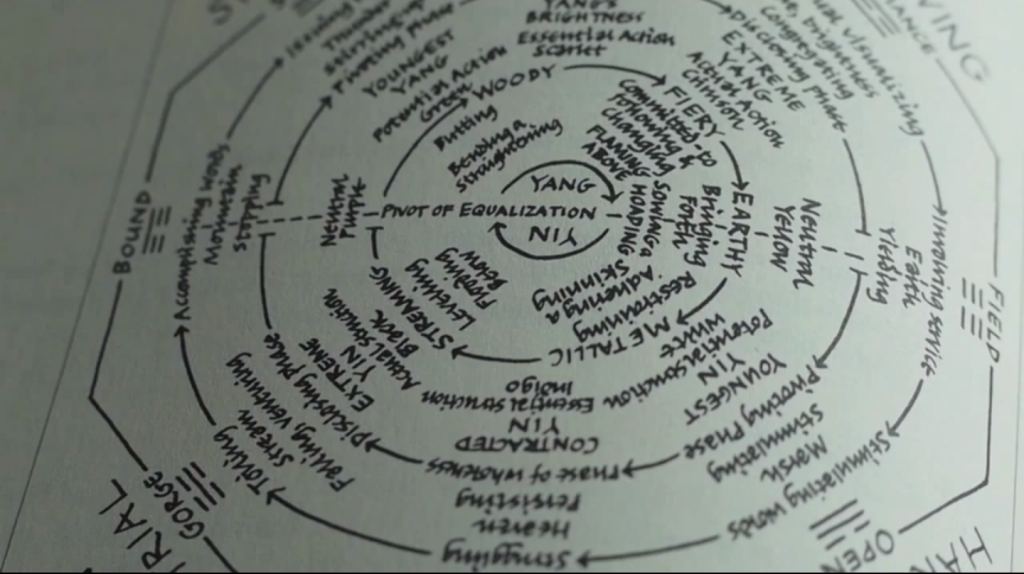 YANG'S
BRIGHTNESS
Essential Action
Scarlet
WOODY
FIERY
EARTHY
METALLIC
STREAMING
YOUNGEST
YANG
Potential Action
Green
Butting
Bending &
straightening
Discloning Phase
EXTREME
YANG
Actual Action
Crimson
Committed to
Following &
changing
FLAMING
ABOVE
YANG
PIVOT OF EQUALIZATION
YIN
HOARDING
SOWING &
Bringing
Forth
Neutral
Yellow
Neutral
Purple
RESTRAINING
Adhering &
Skinning
Flowing
Below
Leveling
EXTREME
YIN
Actual Struction
Black
Essential Struction
Indigo
CONTRACTED
YIN
Potential Struction
White
YOUNGEST
YIN
Pivoting Phase
Phase of Wholeness
Disclosing Phase
Pivoting Phase
Congregating Phase
visualizing
Involving service
Earth
Yielding
Stimulating words
Marsh
Stimulating
Struggling
Heaven
Persisting
Toiling
Stream
Falling, Venturing
Accomplishing words
Mountain
Stopping
BOUND
FIELD
OPEN
GORGE
RIAL
VING
HAN